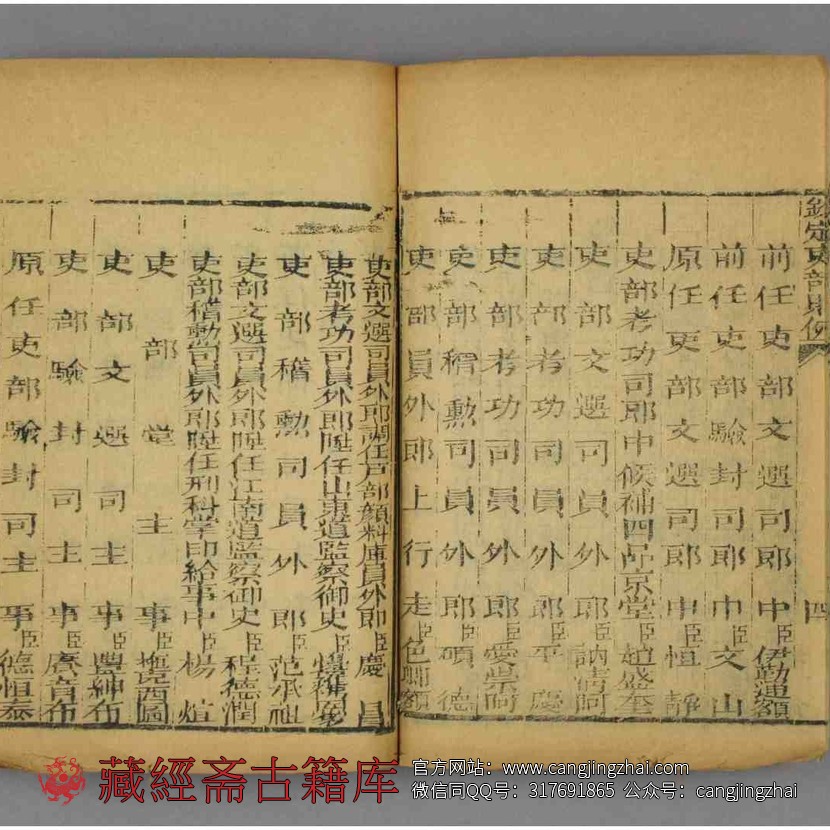 欽定吏部則例
四
前任吏部文選司郎中臣伊勒通額
前任吏部驗封司郎中臣文山
原任吏部文選司郎中臣恒靜
吏部考功司郎中候補四品京堂臣趙盛奎
吏部文選司員外郎臣訥清阿
吏部考功司員外郎臣平慶
吏部考功司員外郎臣愛崇阿
吏部稽勳司員外郎臣碩德
吏部員外郎上行走臣色卿額
吏部文選司員外郎調任戶部顏料庫員外郎臣慶昌
吏部考功司員外郎陞任山東道監察御史臣
吏部稽勳司員外郎臣范承祖
吏部文選司員外郎陞任江南道監察御史臣程德潤
吏部稽勳司員外郎陞任刑科掌印給事中臣楊煊
吏部堂主事臣西圖
吏部文選司主事臣豐紳布
吏部驗封司主事臣賡音布
原任吏部驗封司主事臣德恒泰
藏經斋古籍库
官方网站：www.cangjingzhai.com
微信同QQ号：317691865 公众号：cangjingzhai